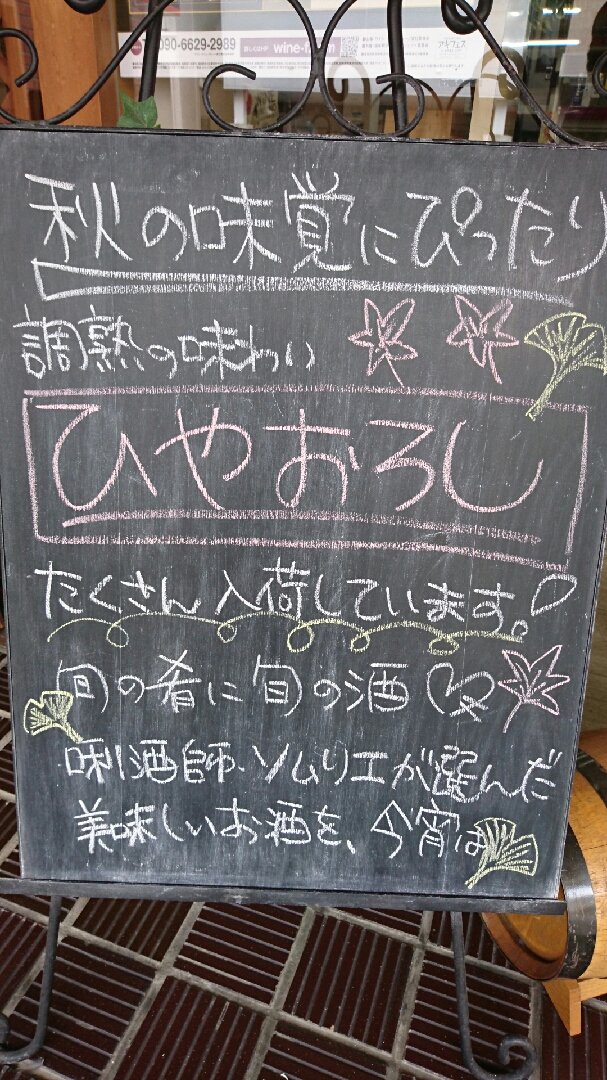 090-6629-2989
wine-f
秋の味覚にぴったり
調熟の味わい
ひやおろし
たくさん入荷しています。
旬の肴に旬の酒
唎酒師・ソムリエが選んだ
美味しいお酒を、今宵は